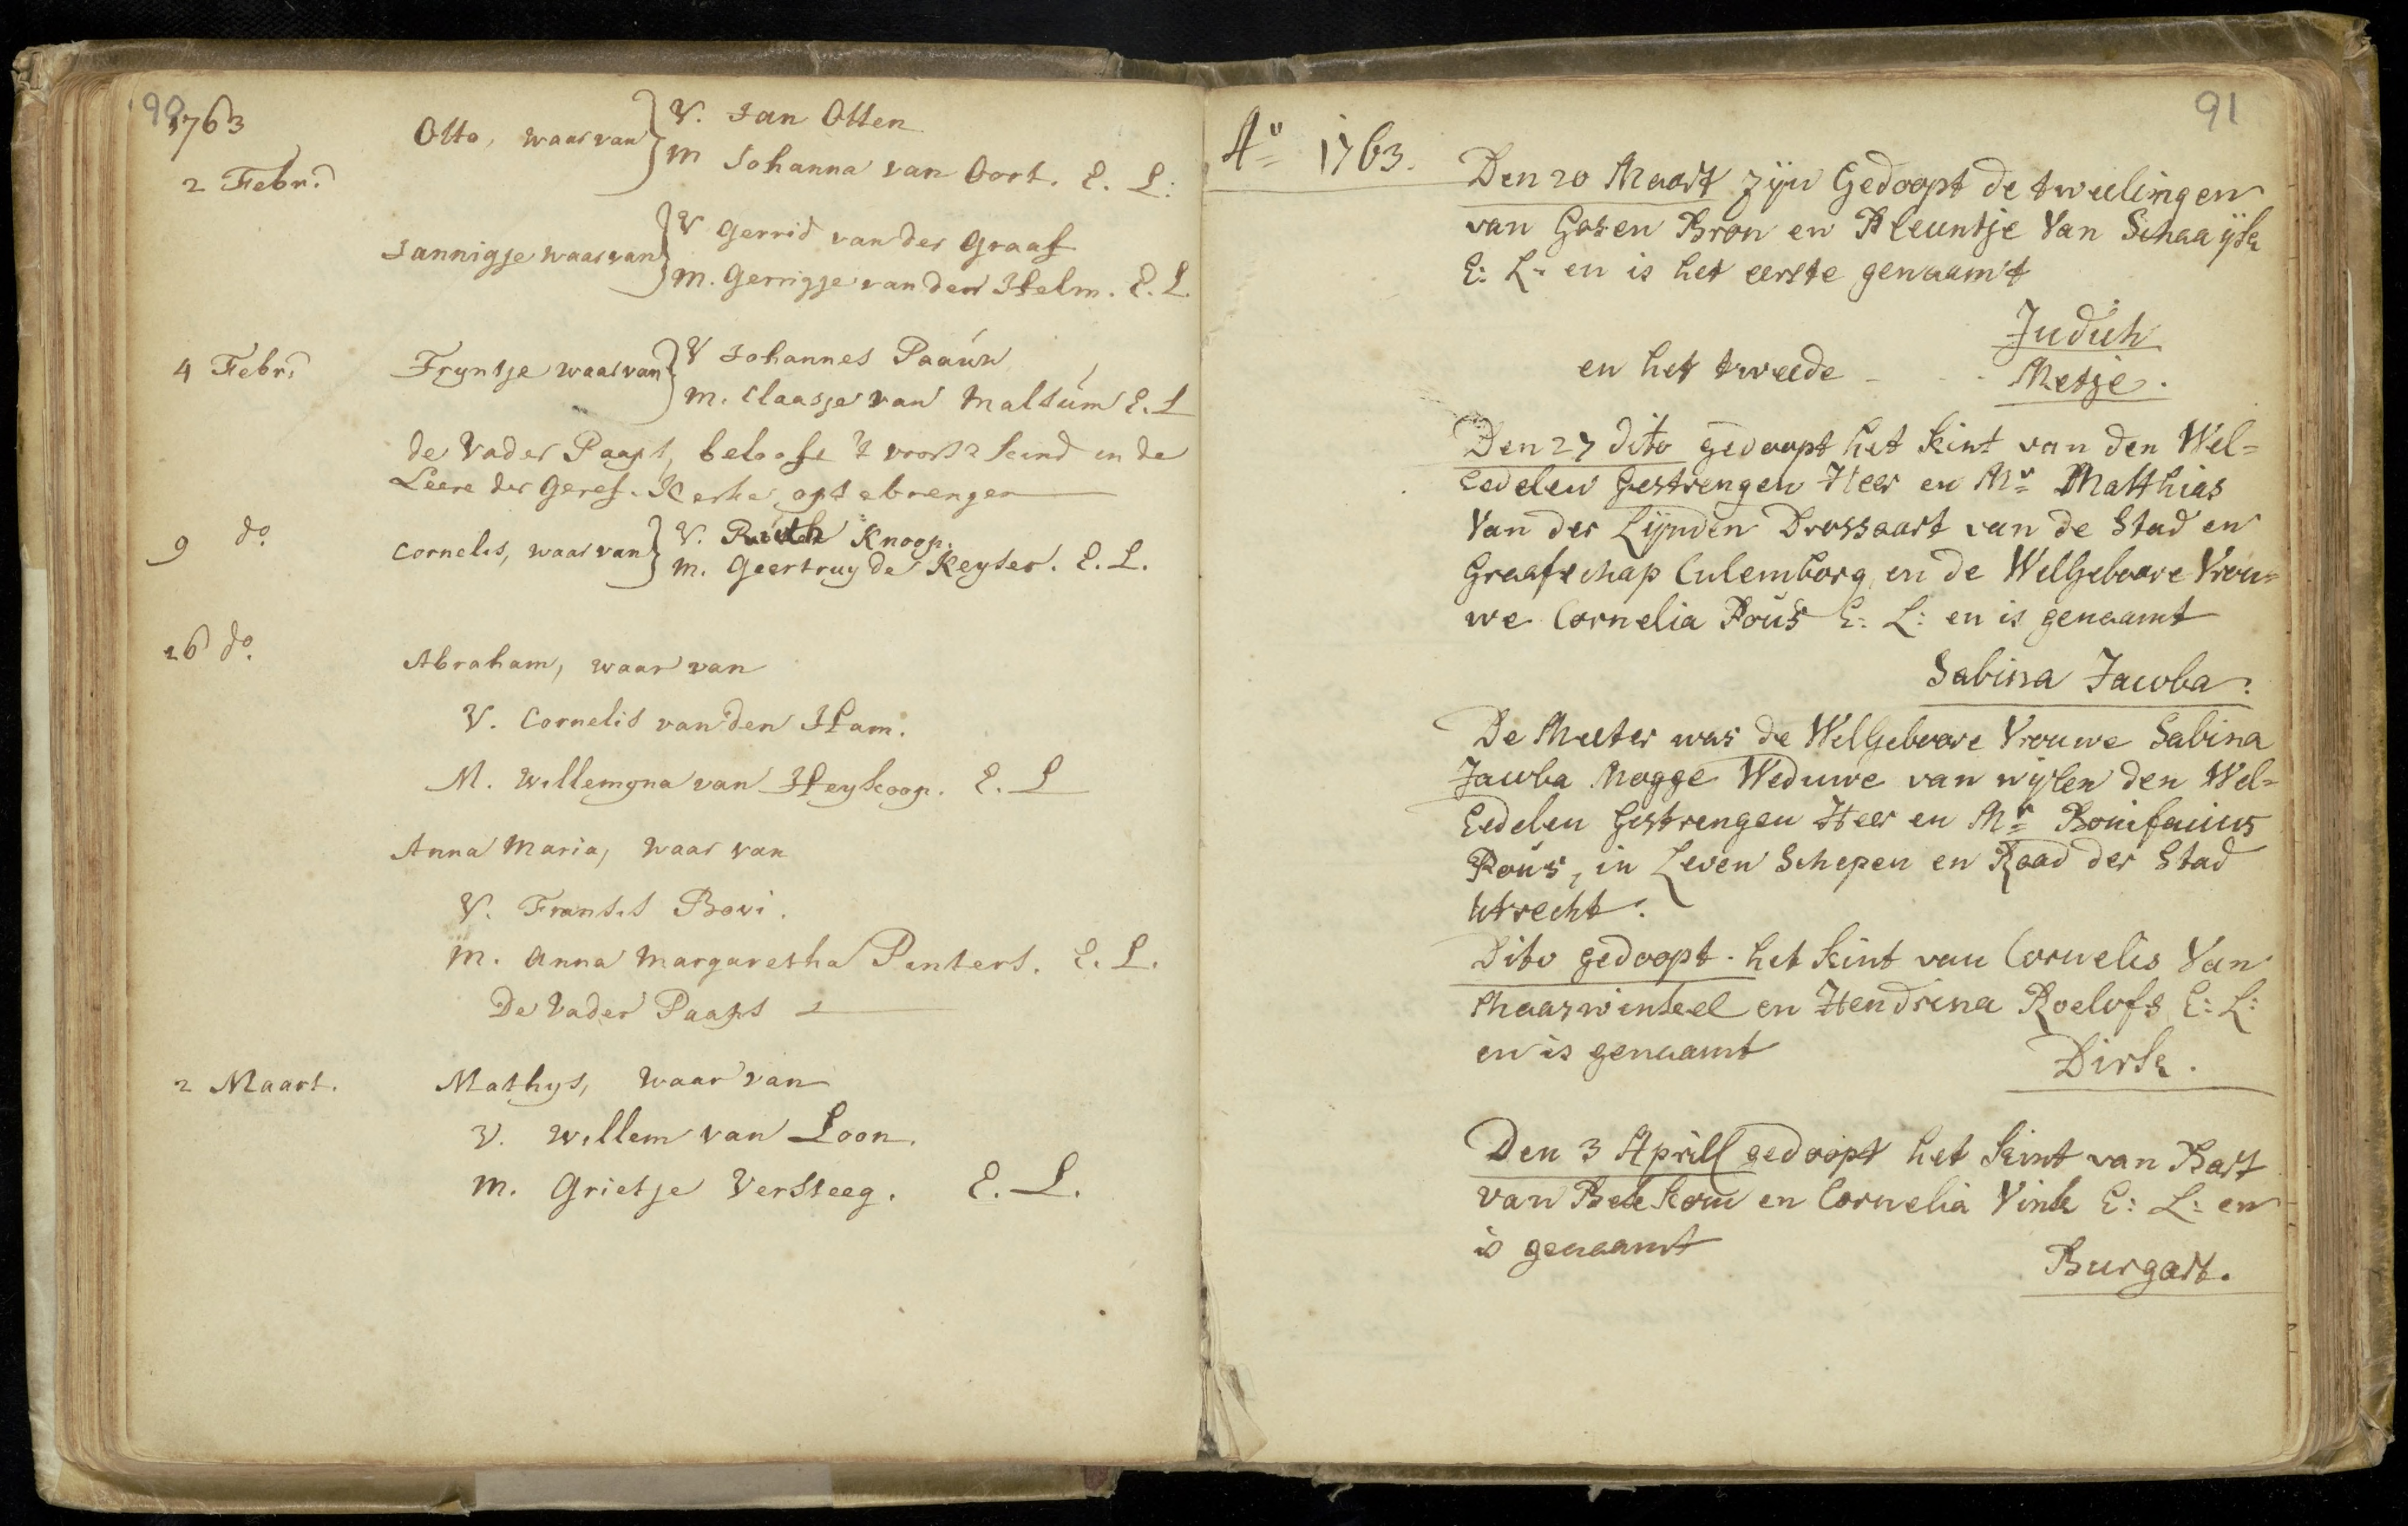 90
1763
2 Febr.
Otto, waar van
V. Jan Otten
M Johanna van Oort. E. L:
Jannigje waar van
V Gerrid van der Graaf
M. Gerrigje van den Ham. E. L.
4 Febr.
Fryntje waar van
V Johannes Paauw
M. Claasje van Maltum E. L
de Vader Paaps, beloofe 't kind in de
Leere der Geref. Kerke opt ebrengen
9 do.
Cornelis, waar van
V. Knoop.
M. Geertruy de Keyser. E. L.
16 do.
Abraham, waar van
V. Cornelis van den Ham.
M. Willemyna van Heykoop. E. L
Anna Maria, waar van
V. Fransis Bovi.
M. Anna Margaretha Penters. E. L.
De Vader Paaps
2 Maart.
Mathys, waar van
V. Willem van Loon.
M. Grietje Versteeg. E. L.
91
Ao 1763.
Den 20 Maart zijn Gedoopt de tweelingen
van Gosen Bron en Pleuntje Van Schaayk
E: L: en is het eerste genaam't
Judith
en het tweede - - - Metje.
Den 27 dito gedoopt het kint van den Wel=
Eedelen Gestrengen Heer en Mr Matthias
Van der Lijnden Drossaart van de Stad en
Graafschap Culemborg, en de WelGeboore Vrou=
we Cornelia Pous E: L: en is genaamt
Sabina Jacoba.
De Meeter was de WelGeboore Vrouwe Sabina
Jacoba Nogge Weduwe van wijlen den Wel=
Eedelen Gestrengen Heer en Mr Bonifacius
Pous, in Leven Schepen en Raad der Stad
Utrecht.
Dito gedoopt het kint van Cornelis Van
Maaswinkel en Hendrina Roelofs E: L:
en is genaamt
Dirk.
Den 3 Aprill gedoopt het kint van Bart
van Beekom en Cornelia Vink E: L: en
is genaamt
Burgart.